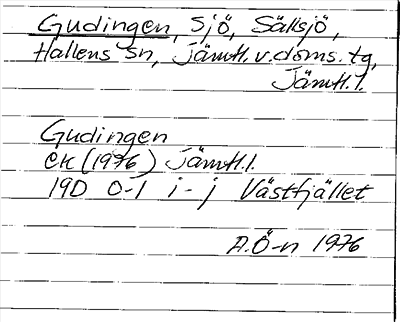 Gudingen, Sjö, Sällsjö,
Hallens sn, Jämtl. v. doms. tg,
Jämtl. l.
Gudingen
ek (1976) Jämtl. l.
19D 0-1 i - j Västfjället
A.Ö-n 1976